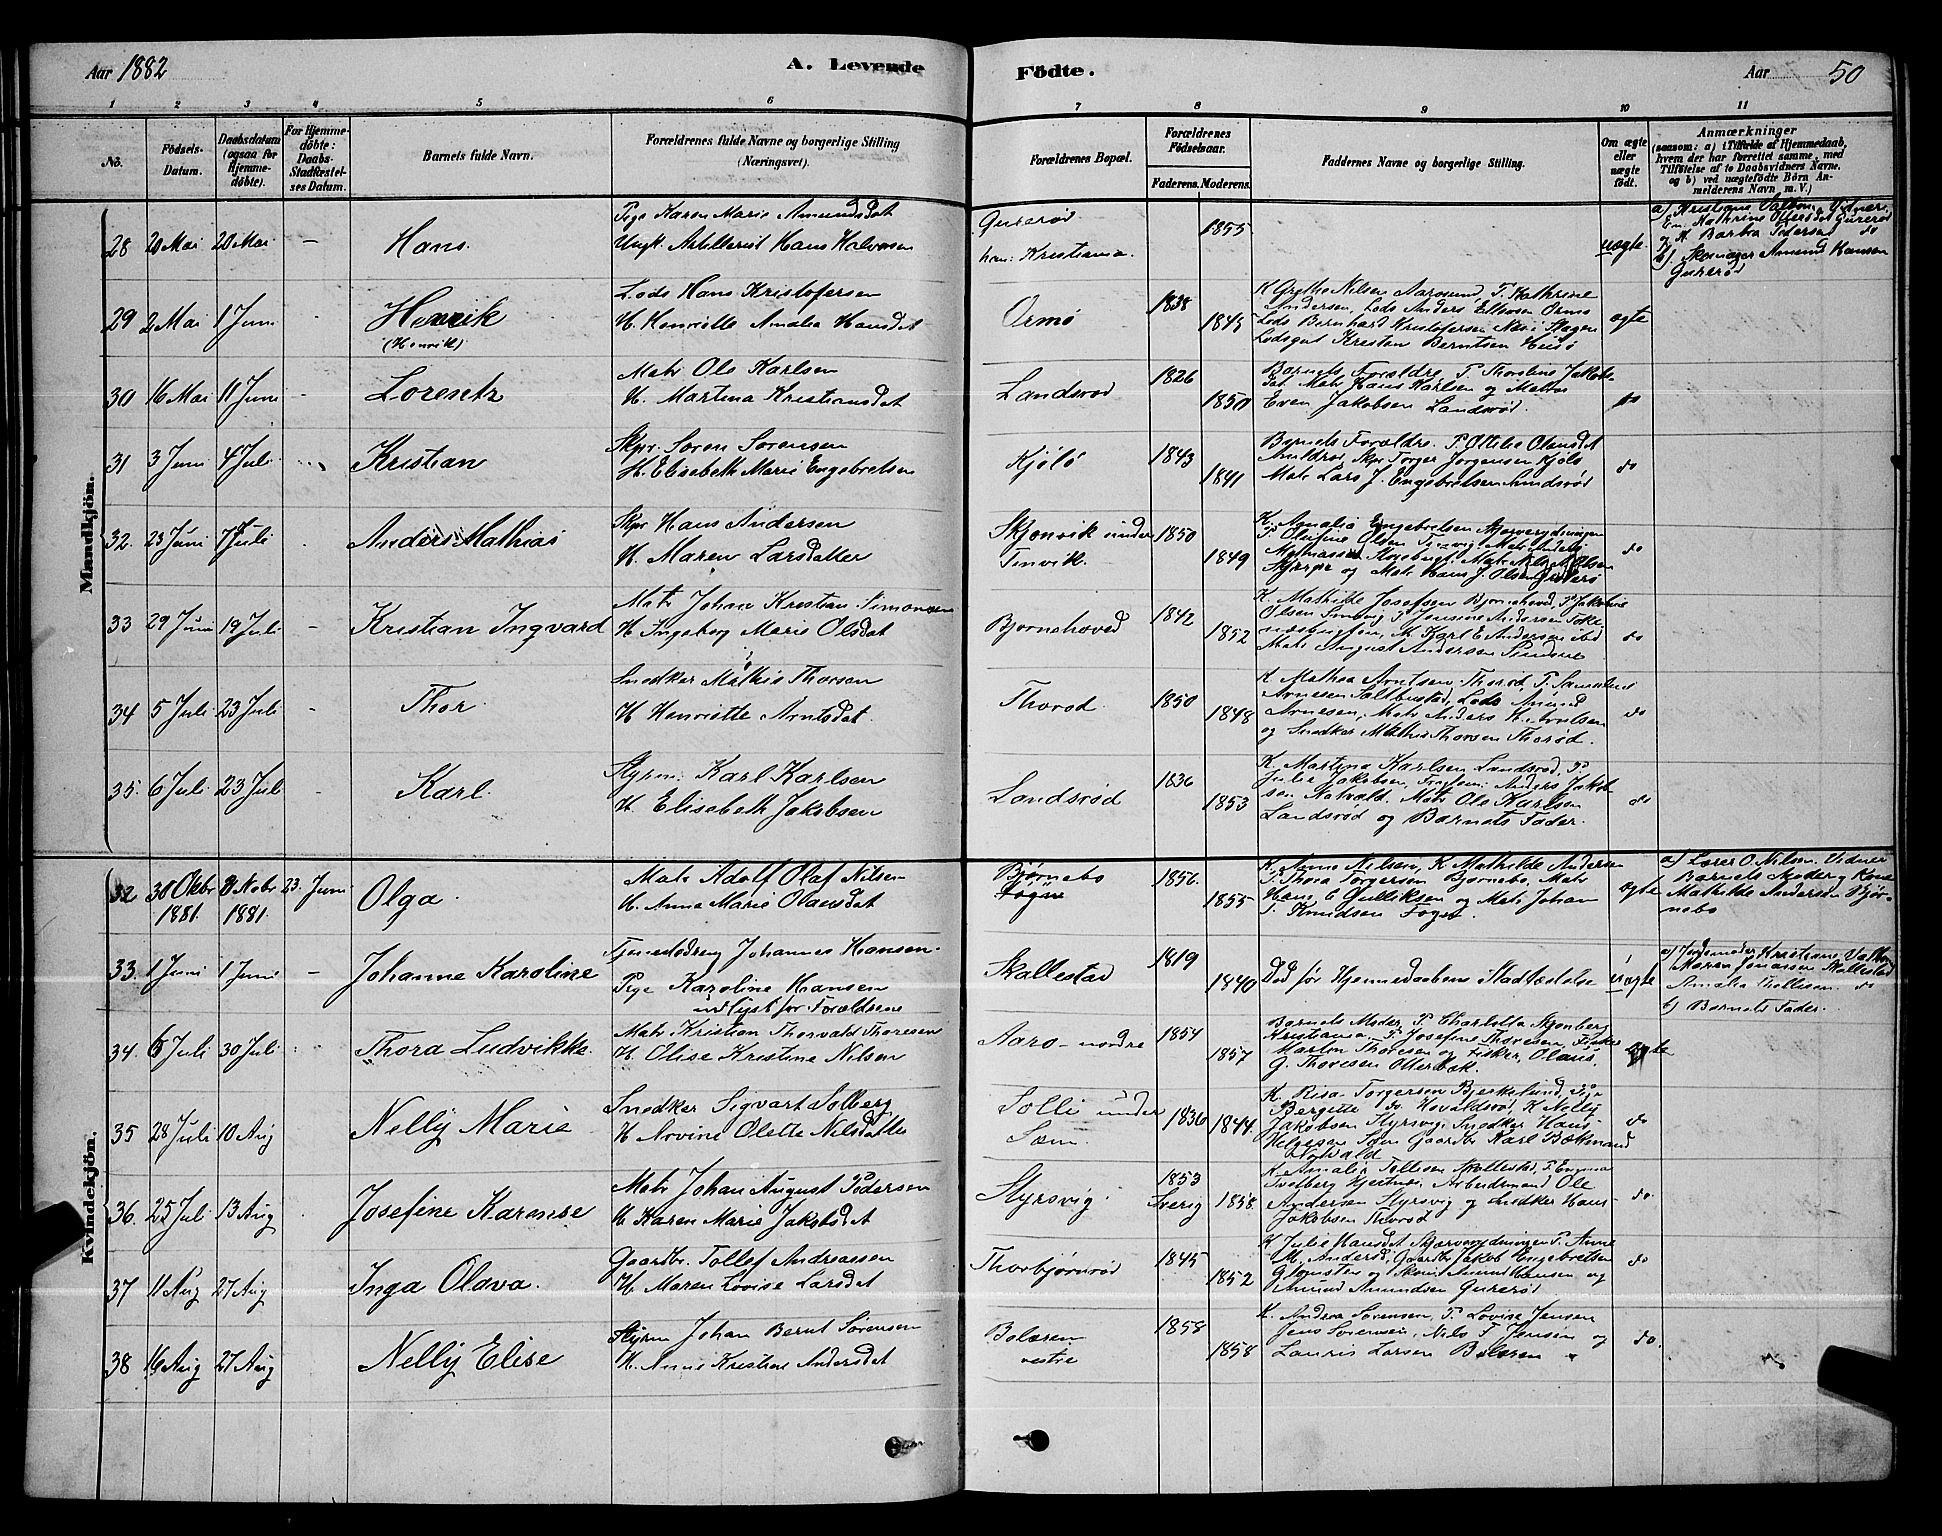 Aar 1882
A. Levende
Födte.
Aar
50
1 2 3 4 5 6 7 8 9 10 11
No.
Födsels-Datum.
Daabsdatum (ogsaa for Hjemmedöbte).
For Hjemmedöbte: Daabs-Stadfæstelses Datum.
Barnets fulde Navn.
Forældrenes fulde Navne og borgerlige Stilling (Næringsvei).
Forældrenes Bopæl.
Forældrenes Födselsaar.
Faderens. Moderens.
Faddernes Navne og borgerlige Stilling.
Om ægte eller uægte födt.
Anmærkninger
(saasom: a) i Tilfælde af Hjemmedaab, hvem der har forrettet samme, med Tilføielse af to Daabsvidners Navne, og b) ved uægtefödte Börn Anmelderens Navn m. V.)
Mandkjön.
28 20 Mai 20 Mai — Hans.
Pige Karen Marie Amundsdat
Ungk. Artillerist Hans Halvorsen
Gurerød
han: Kristiania.
1855
uægte
b) Skomager Amund Hansen
Gurerød
29 2 Mai 1 Juni - Henrik
(Henrik)
Lods Hans Kristofersen
H. Henriette Amalia Hansdat
Ormø
1838
1845
K Grethe Nilsen Aarosund, P. Kathrine
Andersen, Lods Anders Ellevsen Ormø
Lods Bernhard Kristofersen
Lodsgut Kristen Berntsen
ægte
30 16 Mai 11 Juni - Lorentz
Matr Ole Karlsen
H. Martina Kristiansdat
Landsrød
1826
1850
Barnets Forældre. P Thorstine Jakobs-
dat. Matr Hans Karlsen og Matros
Even Jakobsen Landsrød.
do
31 3 Juni 4 Juli Kristian
Skpr. Søren Sørensen
H. Elisabeth Marie Engebretsen
Kjølø
1843
1841
Barnets Forældre. P Ottilie Olausdat
Skpr Torger Jørgensen Kjølø
Matr Lars J. Engebretsen Sundrød
do
32. 23 Juni 7 Juli Anders Mathias
Skpr Hans Andersen
H. Maren Larsdatter
Skjønvik under
Tinvik.
1850
1849
K. Amalia Engebretsen
P. Olufine Olsen
og Matr Hans J. Olsen
do
33 29 Juni 19 Juli - Kristian Ingvard
Matr Johan Kristian Simonsen
H Ingeborg Marie Olsdat
Bjørnehoved
1842
1852
K. Mathilde Josefsen Bjørnehoved, P. Jakobine
Olsen
M Karl E Andersen ibid
Matr August Andersen
do
34 5 Juli 23 Juli - Thor
Snedker Mathis Thorsen
H Henriette Arntsdat.
Thorød.
1850
1848
K Mathea Arntsen, Thorød, P. Samueline
Arnesen Saltbustad, Lods Amund
Arnesen, Matr Anders H. Arntsen
og Snedker Mathis Thorsen Thorød.
do
35. 6 Juli 23 Juli - Karl.
Styrm: Karl Karlsen
H Elisabeth Jakobsen
Landsrød
1836
1853
K. Martina Karlsen Landsrød, P.
Julie Jakobsen, Anders Jakob-
sen Natvald. Matr Ole Karlsen
Landsrød og Barnets Fader.
do
Kvindekjön.
32 30 Okbr 1881. 8 Nobr 1881. 23. Juni Olga.
Matr Adolf Olaf Nilsen
H. Anna Marie Olausdat
Bjørnebo
1856.
1855
K. Anna Nilsen, K Mathilde Andersen
P. Thora Torgersen Bjørnebo, Matr
Hans C Gulliksen og Matr Johan
T. Knudsen
ægte
a) Lærer O. Nilsen. Vidner
Barnets Moder og Kone
Mathilde Andersen Bjør-
nebo
33. 1 Juni 1 Juni - Johanne Karoline
Tjenestedreng Johannes Hansen.
Pige Karoline Hansen
udlyst for Forældrene
Skallestad
1819
1840
Död før Hjemmedaabens Stadfæstelse
uægte
a) Jordemoder Kristiane
Maren Jonassen Skallestad
Amalia Thollisen. do
b) Barnets Fader.
34. 6 Juli 30 Juli Thora Ludvikke.
Matr Kristian Thorvald Thoresen
H Olise Kristine Nilsen
Aarø - nordre
1854
1857
Barnets Moder, P Charlotta Skjønberg
Kristiania, P. Josefine Thoresen, Fisker
Martin Thoresen og Fisker, Olaus
G. Thoresen Otterbæk.
ægte
35 28 Juli 10 Aug Nelly Marie
Snedker Sigvart Solberg
H Arvine Olette Nilsdatter
Solli under
Sæm.
1836
1844.
K. Risa Torgersen Bjerkelund, Pige
Bergitte do Hovaldsrød, K Nelly
Jakobsen Styrsvig, Snedker Hans
Helgesen Sem Gaardbr Karl Bækmand
Natvald
do
36. 25 Juli 13 Aug Josefine Karense
Matr Johan August Pedersen
H. Karen Marie Jakobsdat
Styrsvig.
1853
Sverig
1858.
K. Amalia Tollisen Skallestad, P. Emma
Arbeidsmand Ole
Andersen Styrsvig og Snedker Hans
Jakobsen Thorød
do
37 11 Aug 27 Aug Inga Olava.
Gaardbr. Tollef Andreassen
H. Maren Lovise Larsdat
Thorbjørnrød
1845
1852
K Julie Hansdat P. Anne
M. Andersd., Gaardbr Jakob Engebretsen
Glomsten og Skom. Amund Hansen og
Amund Amundsen Gurerød
do
38 16 Aug 27 Aug Nelly Elise
Styrm Johan Bernt Sørensen
H. Anne Kristine Andersdat
Bolæren
vestre
1858
1858
K. Andrea Sørensen, P. Lovise Jensen
Jens Sørensen, Nils F Jensen og
Lauris Larsen Bolæren
do.